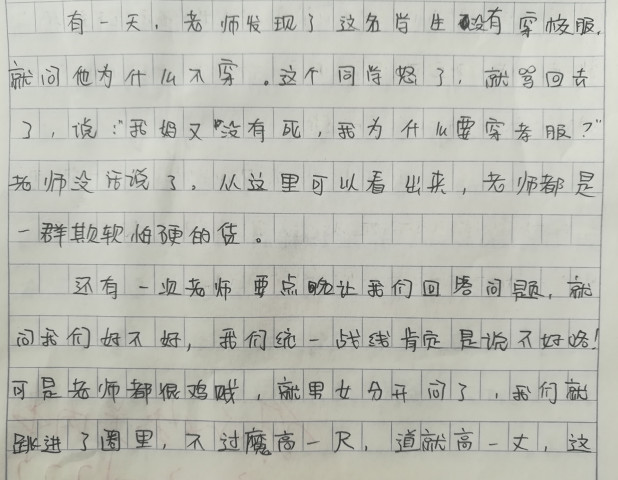 有一天，老师发现了这名学生没有穿校服，
就问他为什么不穿。这个同学怒了，就骂回去
了，说："我妈又没有死，我为什么要穿孝服？"
老师没话说了，从这里可以看出来，老师都是
一群欺软怕硬的货。
还有一次老师要点晚让我们回答问题，就
问我们好不好，我们统一战线肯定是说不好哈！
可是老师都很鸡贼，就男女分开问了，我们就
跳进了圈里，不过魔高一尺，道就高一丈，这